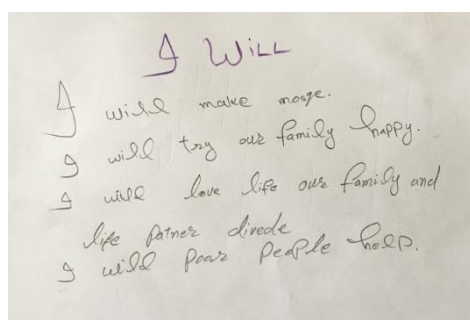 I WILL
I will make mosge.
I will try our family happy.
I will love life our family and
life patner divede
I will poor people help.